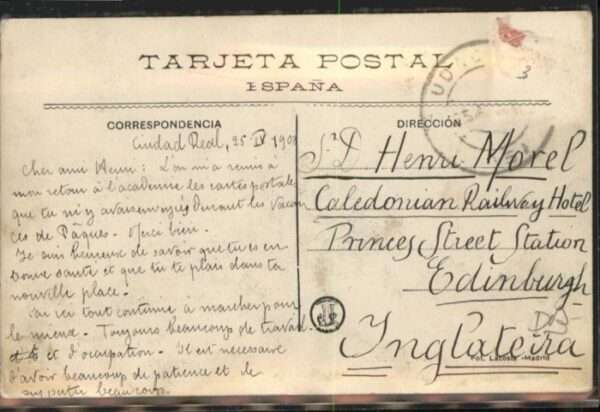 TARJETA POSTAL
ESPAÑA
CORRESPONDENCIA
DIRECCIÓN
Ciudad Real, 25 IV 190
Cher ami Henri : L'on m'a remis à
mon retour à l'académie les cartes postales
que tu m'y avais envoyés durant les vacan
ces de Pâques. Merci bien.
Je suis heureux de savoir que tu es en
bonne santé et que tu te plais dans ta
nouvelle place.
ici tout continue à marcher pour
le mieux. Toujours beaucoup de travail
et d'ocupation. Il est nécessaire
d'avoir beaucoup de patience et de
beaucoup.
Sr D Henri Morel
Caledonian Railway Hotel
Princes Street Station
Edinburgh
Inglaterra
Fot. Lacoste - Madrid
3